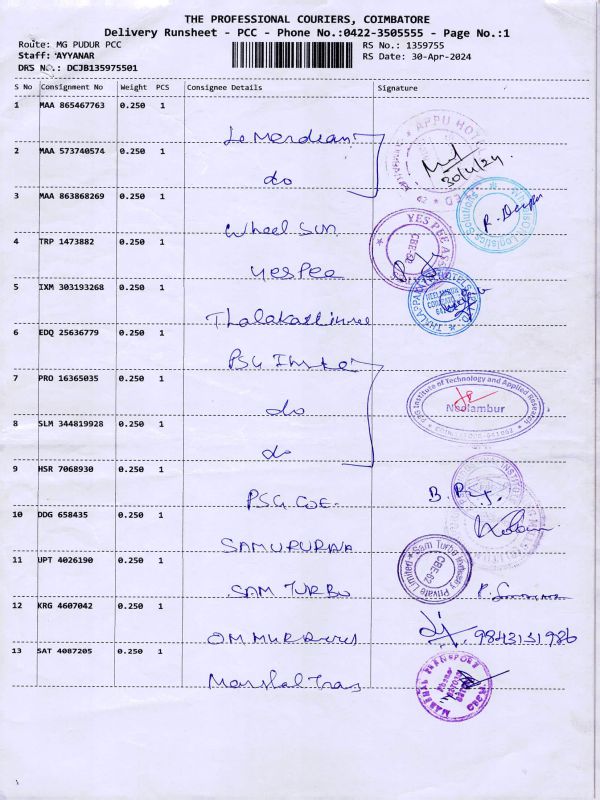 THE PROFESSIONAL COURIERS, COIMBATORE
Delivery Runsheet - PCC - Phone No.:0422-3505555 - Page No.:1
Route: MG PUDUR PCC
RS No.: 1359755
Staff: AYYANAR
RS Date: 30-Apr-2024
DRS No.: DCJB135975501
S No Consignment No Weight PCS Consignee Details Signature
1 MAA 865467763 0.250 1
Le Merdean
APPU HOT
30/4/24
2 MAA 573740574 0.250 1
do
3 MAA 863868269 0.250 1
Wheel Sun
Logistics Solutions
4 TRP 1473882 0.250 1
Yes Pee
YES PEE
CBE-62
5 IXM 303193268 0.250 1
6 EDQ 25636779 0.250 1
PSG
7 PRO 16365035 0.250 1
do
PSG Institute of Technology and Applied Research
Neelambur
8 SLM 344819928 0.250 1
do
9 HSR 7068930 0.250 1
PSG COE.
10 DDG 658435 0.250 1
SAMPURNA
11 UPT 4026190 0.250 1
SAM TURBO
Sam Turbo Industry Private Limited
CBE-62
12 KRG 4607042 0.250 1
9843131986
13 SAT 4087205 0.250 1
Marshal Trans
MARSHAL TRANSPORT